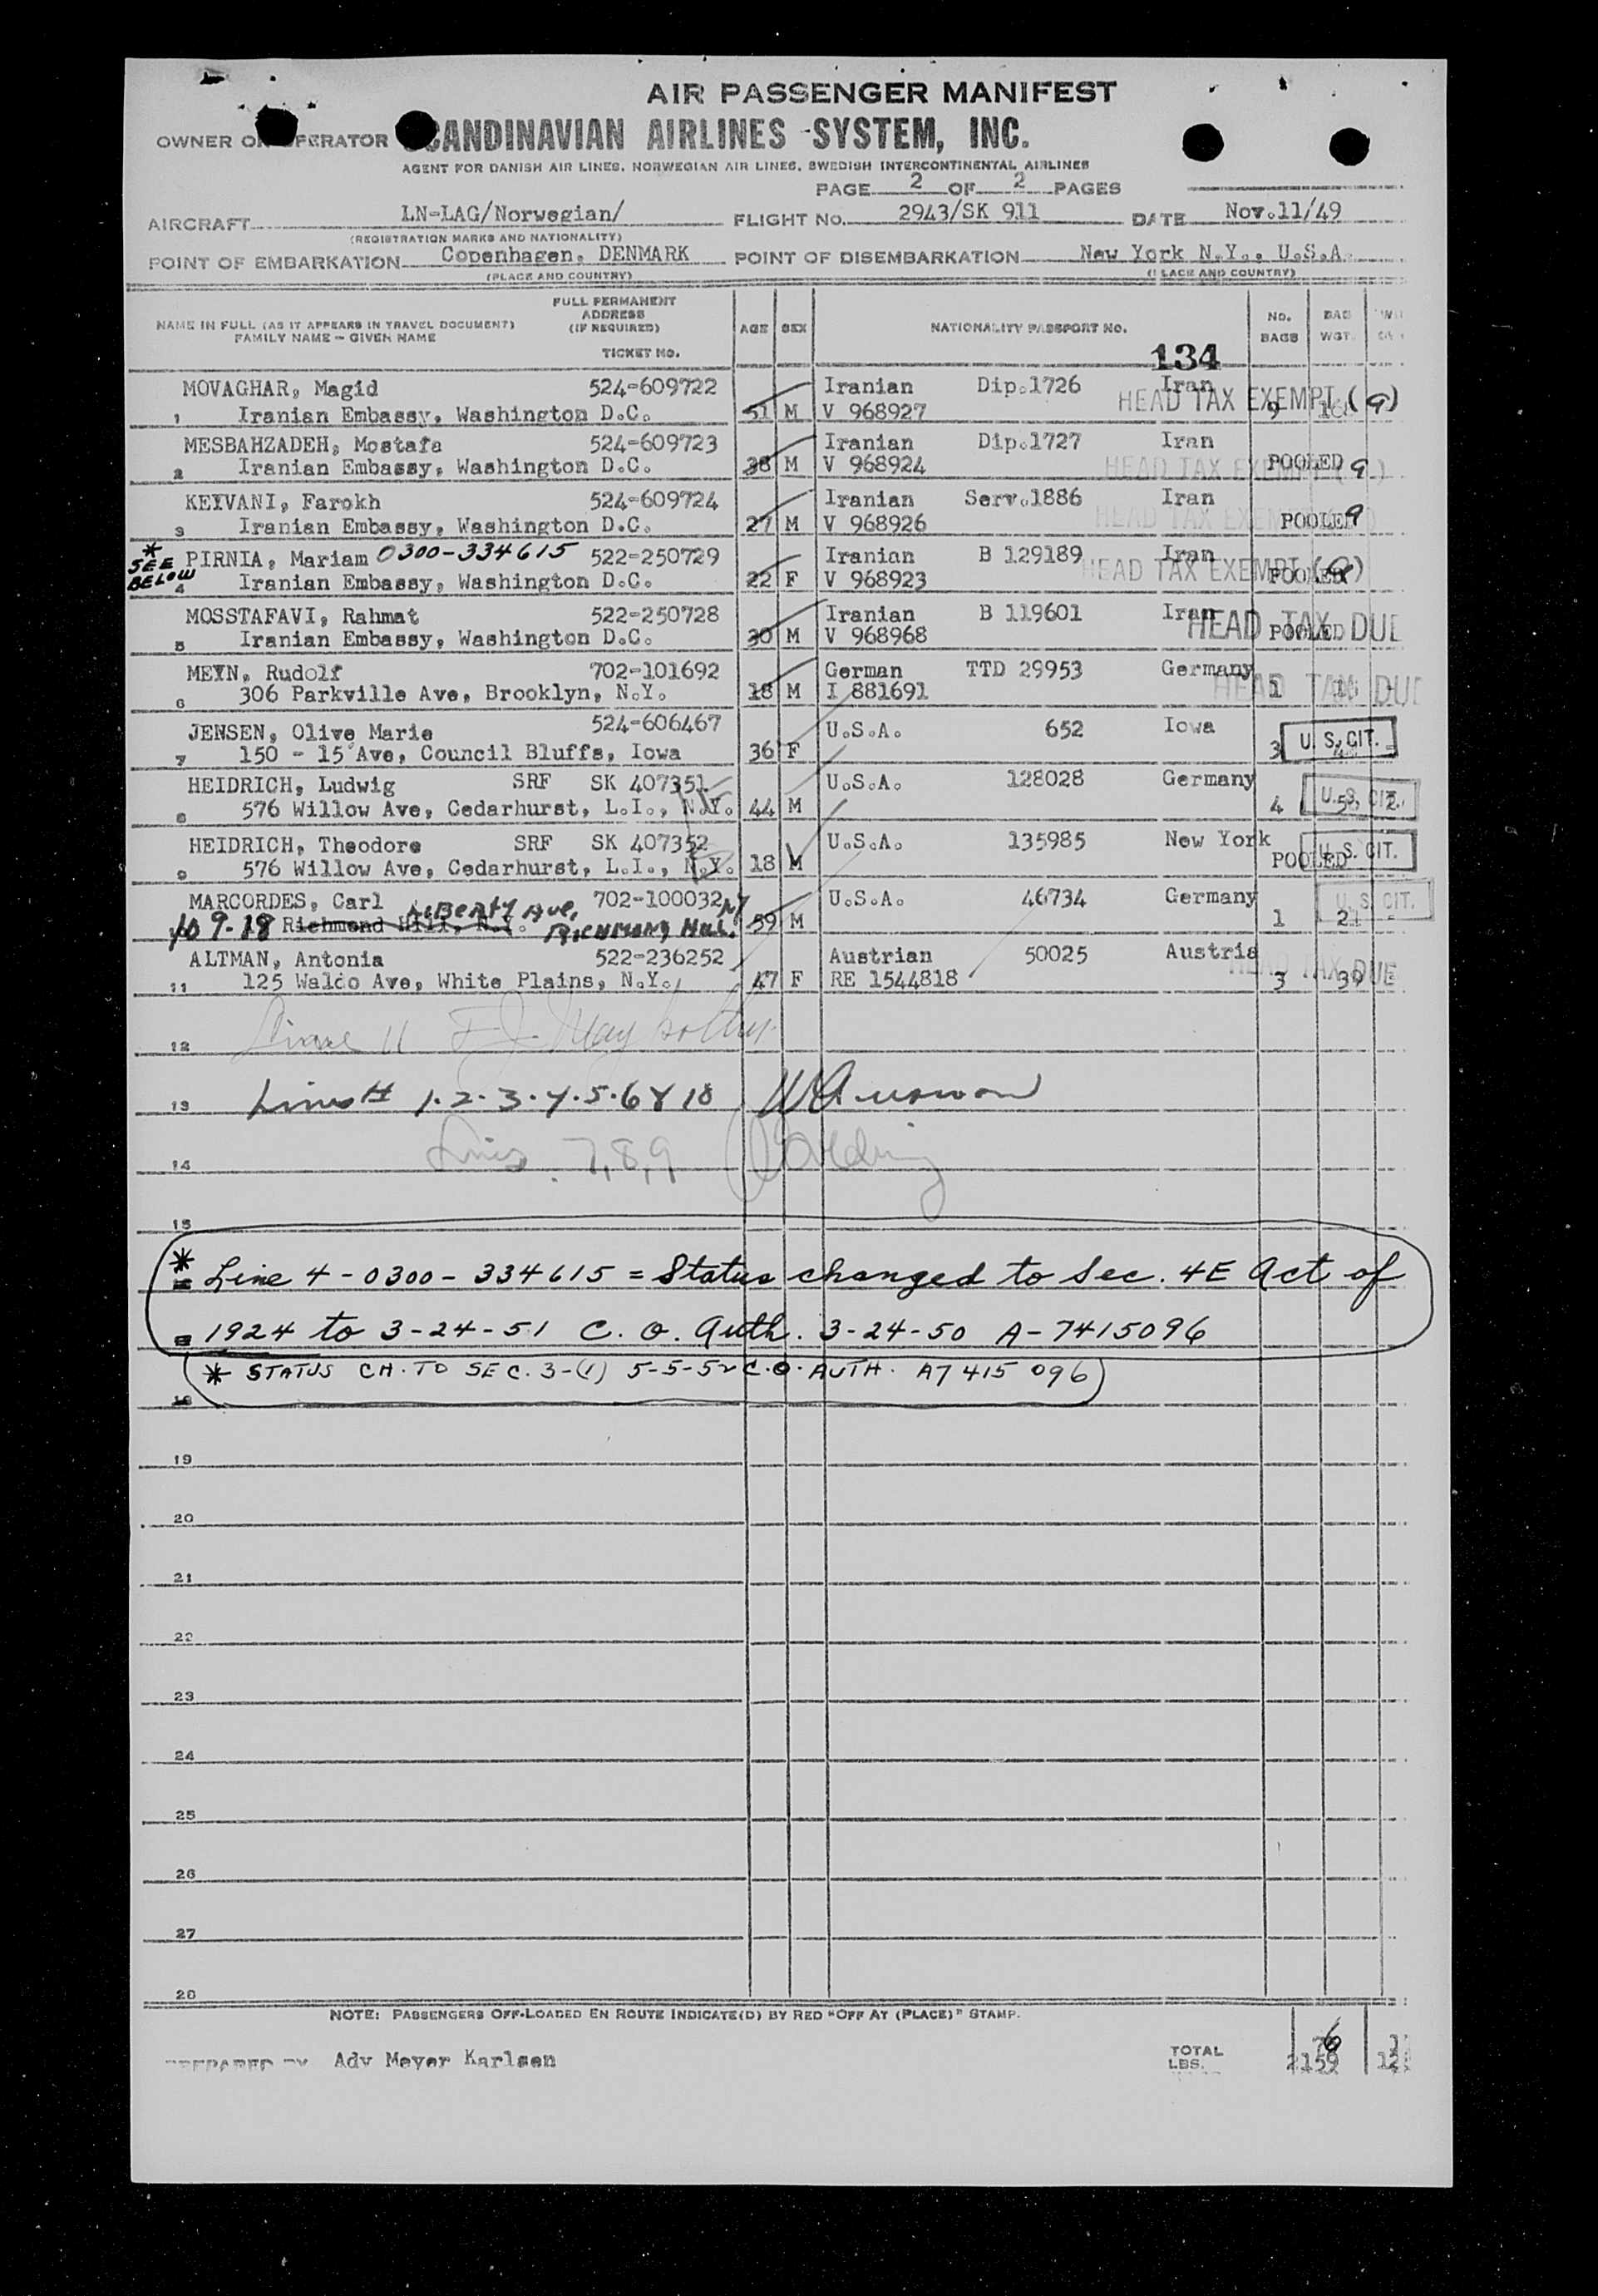 AIR PASSENGER MANIFEST
OWNER OR OPERATOR SCANDINAVIAN AIRLINES SYSTEM, INC.
AGENT FOR DANISH AIR LINES, NORWEGIAN AIR LINES, SWEDISH INTERCONTINENTAL AIRLINES
PAGE 2 OF 2 PAGES
AIRCRAFT LN-LAG/Norwegian/ FLIGHT No. 2943/SK 911 DATE Nov.11/49
(REGISTRATION MARKS AND NATIONALITY)
POINT OF EMBARKATION Copenhagen, DENMARK POINT OF DISEMBARKATION New York N.Y., U.S.A.
(PLACE AND COUNTRY) (PLACE AND COUNTRY)
NAME IN FULL (AS IT APPEARS IN TRAVEL DOCUMENT) FAMILY NAME - GIVEN NAME
FULL PERMANENT ADDRESS (IF REQUIRED)
TICKET NO.
AGE SEX NATIONALITY PASSPORT NO. No. BAGS BAG WGT.
134
MOVAGHAR, Magid 524-609722 Iranian Dip.1726 Iran
1 Iranian Embassy, Washington D.C. 51 M V 968927 HEAD TAX EXEMPT (9) 9
MESBAHZADEH, Mostafa 524-609723 Iranian Dip.1727 Iran
2 Iranian Embassy, Washington D.C. 38 M V 968924 HEAD TAX EXEMPT (9) POOLED
KEYVANI, Farokh 524-609724 Iranian Serv.1886 Iran
3 Iranian Embassy, Washington D.C. 27 M V 968926 HEAD TAX EXEMPT 9 POOLED
* SEE BELOW
PIRNIA, Mariam 0300-334615 522-250729 Iranian B 129189 Iran
4 Iranian Embassy, Washington D.C. 22 F V 968923 HEAD TAX EXEMPT POOLED
MOSSTAFAVI, Rahmat 522-250728 Iranian B 119601 Iran
5 Iranian Embassy, Washington D.C. 30 M V 968968 HEAD TAX DUE POOLED
MEYN, Rudolf 702-101692 German TTD 29953 Germany
6 306 Parkville Ave, Brooklyn, N.Y. 18 M I 881691 HEAD TAX DUE 1
JENSEN, Olive Marie 524-606467 U.S.A. 652 Iowa
7 150 - 15 Ave, Council Bluffs, Iowa 36 F 3 U.S. CIT.
HEIDRICH, Ludwig SRF SK 407351 U.S.A. 128028 Germany
8 576 Willow Ave, Cedarhurst, L.I., N.Y. 44 M 4 U.S. CIT.
HEIDRICH, Theodore SRF SK 407352 U.S.A. 135985 New York
9 576 Willow Ave, Cedarhurst, L.I., N.Y. 18 M POOLED U.S. CIT.
MARCORDES, Carl 702-100032 U.S.A. 46734 Germany
Liberty Ave, NY
10 9-18 Richmond Hill, N.Y. Richmond Hill. 59 M 1 U.S. CIT.
ALTMAN, Antonia 522-236252 Austrian 50025 Austria
11 125 Walco Ave, White Plains, N.Y. 47 F RE 1544818 HEAD TAX DUE 3 39
12
13 Lines # 1.2.3.4.5.6 & 10
14 Lines 7,8,9
15
* Line 4 - 0300-334615 = Status changed to Sec. 4E Act of
1924 to 3-24-51 C.O. Auth. 3-24-50 A-7415096
* STATUS CH. TO SEC. 3-(1) 5-5-52 C.O. AUTH. A7415096
18
19
20
21
22
23
24
25
26
27
28
NOTE: PASSENGERS OFF-LOADED EN ROUTE INDICATE(D) BY RED "OFF AT (PLACE)" STAMP.
PREPARED BY Adv Meyer Karlsen
TOTAL
LBS. 2159